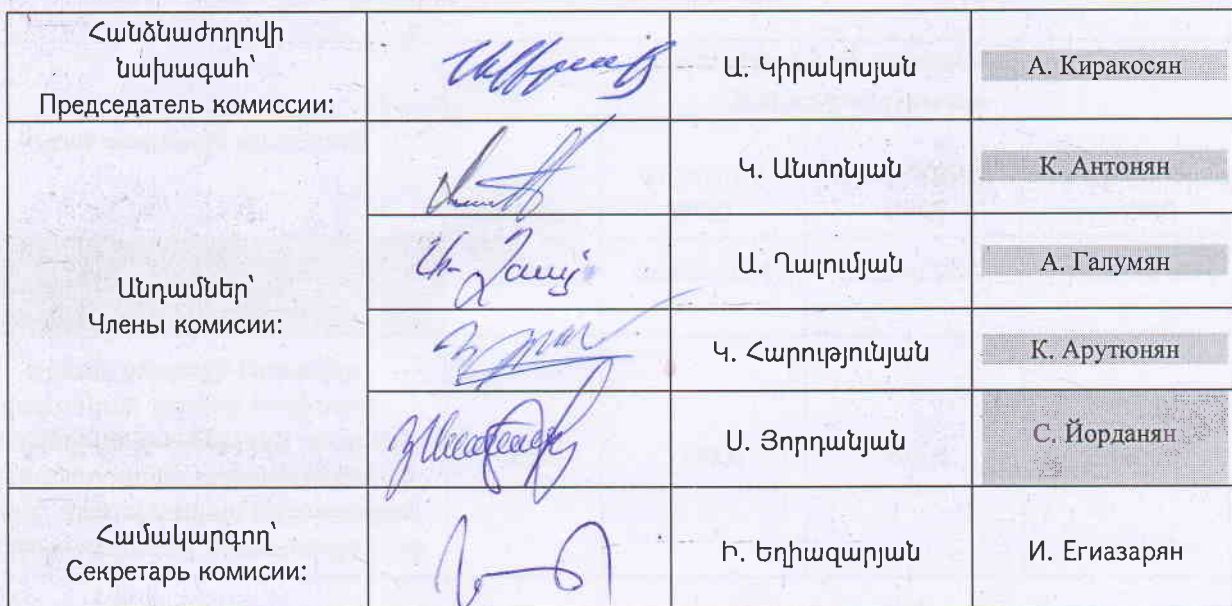 Հանձնաժողովի
նախագահ՝
Председатель комиссии:
Ա. Կիրակոսյան
А. Киракосян
Կ. Անտոնյան
К. Антонян
Անդամներ՝
Члены комисии:
Ա. Ղալումյան
А. Галумян
Կ. Հարությունյան
К. Арутюнян
Ս. Յորդանյան
С. Йорданян
Համակարգող՝
Секретарь комисии:
Ի. Եղիազարյան
И. Егиазарян